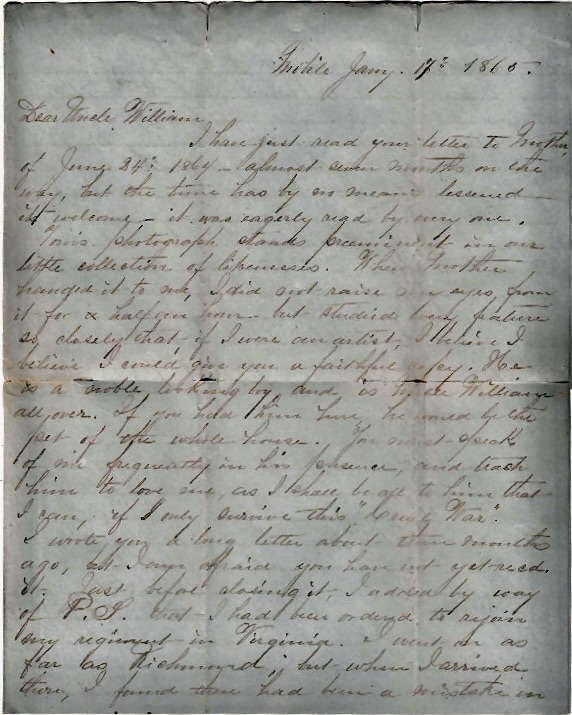 Mobile Jany. 17th 1865.
Dear Uncle William
I have just read your letter to Mother,
of June 24th 1864 - almost seven months on the
way, but the time has by no means lessened
its welcome - it was eagerly read by every one.
Tom's photograph stands preeminent in our
little collection of likenesses. When Mother
handed it to me, I did not raise my eyes from
it for a half an hour - but studied every feature
so closely that, if I were an artist, I believe I
believe I could give you a faithful copy. He
is a noble looking boy and is Uncle William
all over. If you had him here, he would be the
pet of the whole house. You must speak
of me frequently in his presence, and teach
him to love me, as I shall be all to him that
I can, if I only survive this "Cruel War".
I wrote you a long letter about three months
ago, but I am afraid you have not yet recd.
it. Just before closing it, I added by way
of P.S. that I had been ordered to rejoin
my regiment in Virginia. I went on as
far as Richmond, but when I arrived
there, I found there had been a mistake in